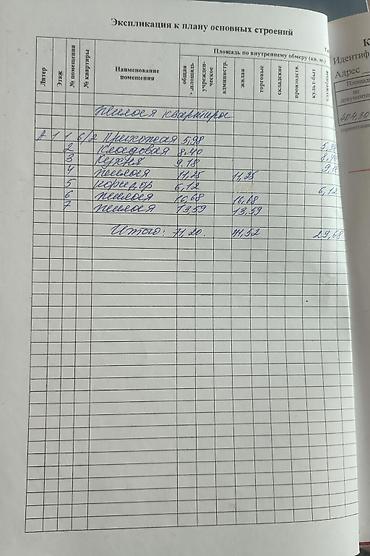 Экспликация к плану основных строений
Площадь по внутреннему обмеру (кв. м.)
Литер
Этаж
№ помещения
№ квартиры
Наименование помещения
общая площадь
учрежден-ческие
администр.
жилая
торговые
складские
производств.
культ-быт
Жилая квартира
2 1 1 6/2 Прихожая 5,98
2 Кладовая 8,40
3 Кухня 9,18 9,18
4 жилая 11,25 11,25
5 коридор 6,12 6,12
6 жилая 16,68 16,68
7 жилая 13,59 13,59
Итого: 71,20 41,52 29,68
Идентиф
Адрес